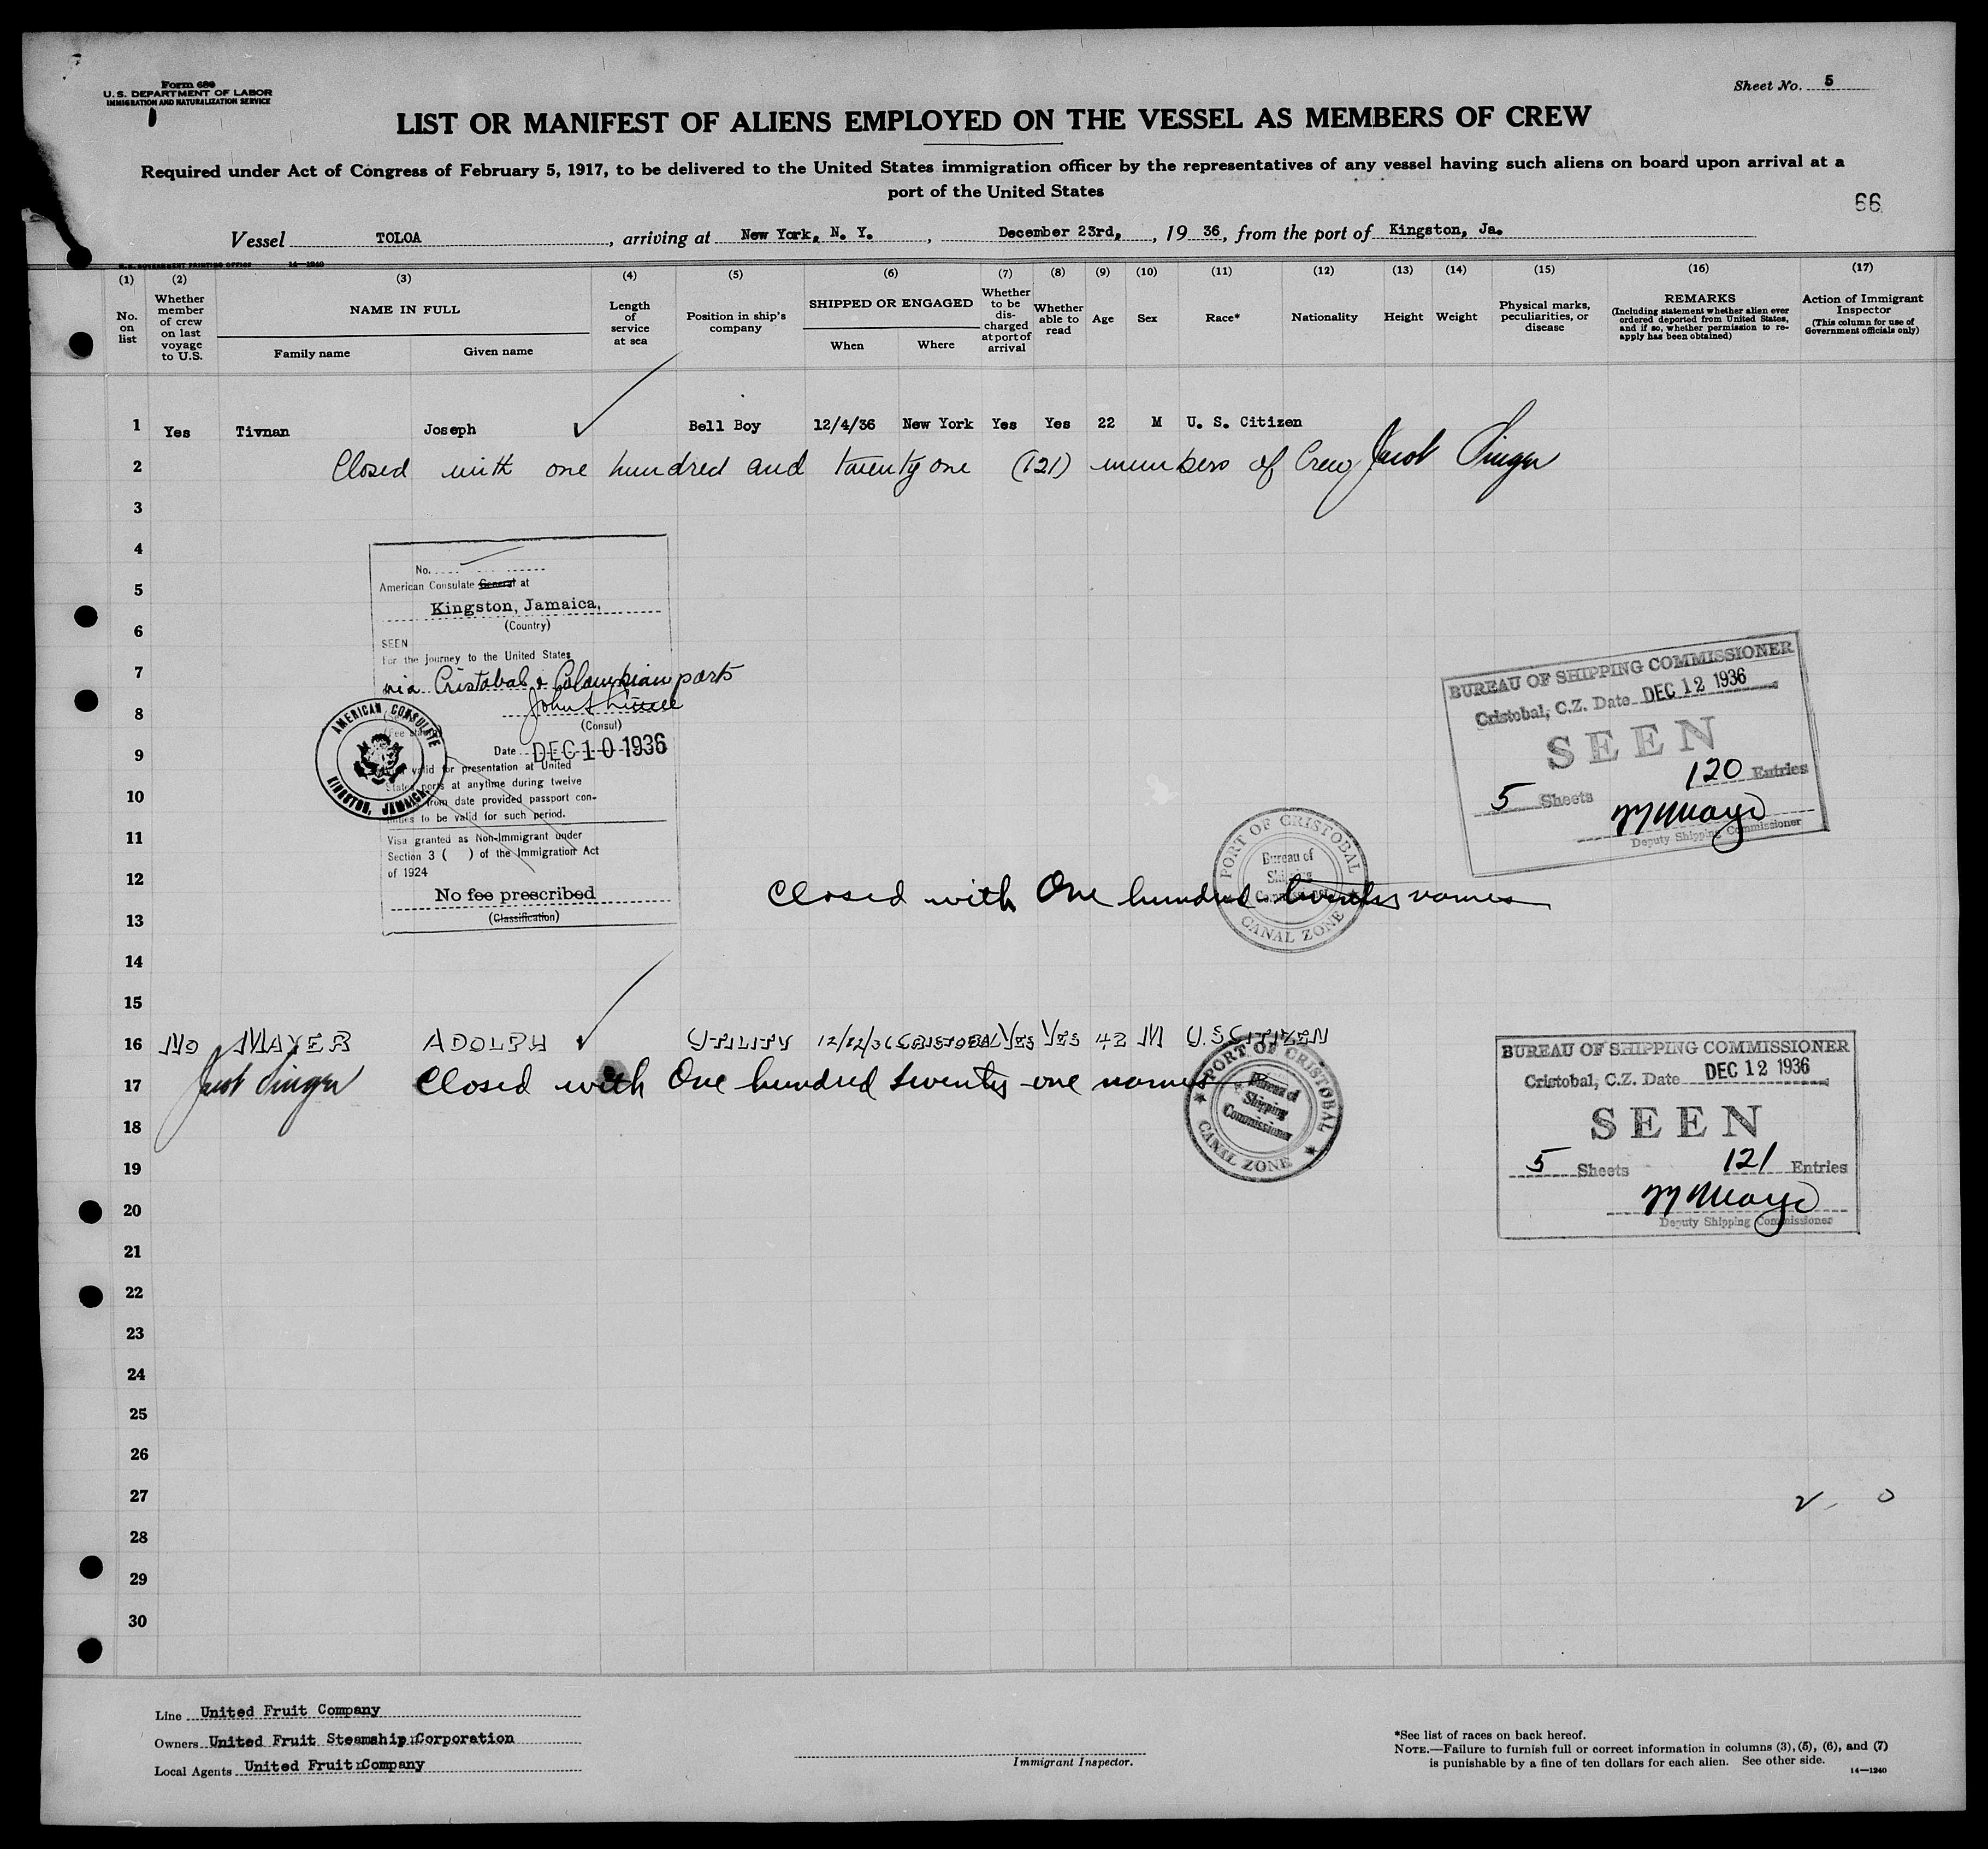 Form 680
U. S. DEPARTMENT OF LABOR
IMMIGRATION AND NATURALIZATION SERVICE
Sheet No. 5
LIST OR MANIFEST OF ALIENS EMPLOYED ON THE VESSEL AS MEMBERS OF CREW
Required under Act of Congress of February 5, 1917, to be delivered to the United States immigration officer by the representatives of any vessel having such aliens on board upon arrival at a
port of the United States
66
Vessel TOLOA, arriving at New York, N. Y., December 23rd, 1936, from the port of Kingston, Ja.
U.S. GOVERNMENT PRINTING OFFICE 14—1240
(1) (2) (3) (4) (5) (6) (7) (8) (9) (10) (11) (12) (13) (14) (15) (16) (17)
No. on list
Whether member of crew on last voyage to U.S.
NAME IN FULL
Family name Given name
Length of service at sea
Position in ship's company
SHIPPED OR ENGAGED
When Where
Whether to be discharged at port of arrival
Whether able to read
Age
Sex
Race*
Nationality
Height
Weight
Physical marks, peculiarities, or disease
REMARKS
(Including statement whether alien ever ordered deported from United States, and if so, whether permission to reapply has been obtained)
Action of Immigrant Inspector
(This column for use of Government officials only)
1 Yes Tivnan Joseph Bell Boy 12/4/36 New York Yes Yes 22 M U. S. Citizen
2 Closed with one hundred and twenty one (121) members of Crew Jacob Singer
3
4
No.
American Consulate General at
5
Kingston, Jamaica,
(Country)
6
SEEN
For the journey to the United States
7
via Cristobal & Columbian ports
8
(Consul)
AMERICAN CONSULATE
KINGSTON, JAMAICA
Date DEC 10 1936
9
valid for presentation at United
States ports at anytime during twelve
10
from date provided passport con-
tinues to be valid for such period.
11
Visa granted as Non-Immigrant under
Section 3 ( ) of the Immigration Act
of 1924
12
No fee prescribed
(Classification)
13
BUREAU OF SHIPPING COMMISSIONER
Cristobal, C.Z. Date DEC 12 1936
SEEN
5 Sheets 120 Entries
Deputy Shipping Commissioner
PORT OF CRISTOBAL
Bureau of
Shipping
Commissioner
CANAL ZONE
Closed with One hundred twenty names
14
15
16 No MAYER ADOLPH UTILITY 12/12/36 CRISTOBAL Yes Yes 42 M U.S. CITIZEN
17 Jacob Singer Closed with One hundred twenty-one names
PORT OF CRISTOBAL
Bureau of
Shipping
Commissioner
CANAL ZONE
BUREAU OF SHIPPING COMMISSIONER
Cristobal, C.Z. Date DEC 12 1936
SEEN
5 Sheets 121 Entries
Deputy Shipping Commissioner
18
19
20
21
22
23
24
25
26
27
28
29
30
Line United Fruit Company
Owners United Fruit Steamship Corporation
Local Agents United Fruit Company
Immigrant Inspector.
*See list of races on back hereof.
NOTE.—Failure to furnish full or correct information in columns (3), (5), (6), and (7)
is punishable by a fine of ten dollars for each alien. See other side.
14—1240